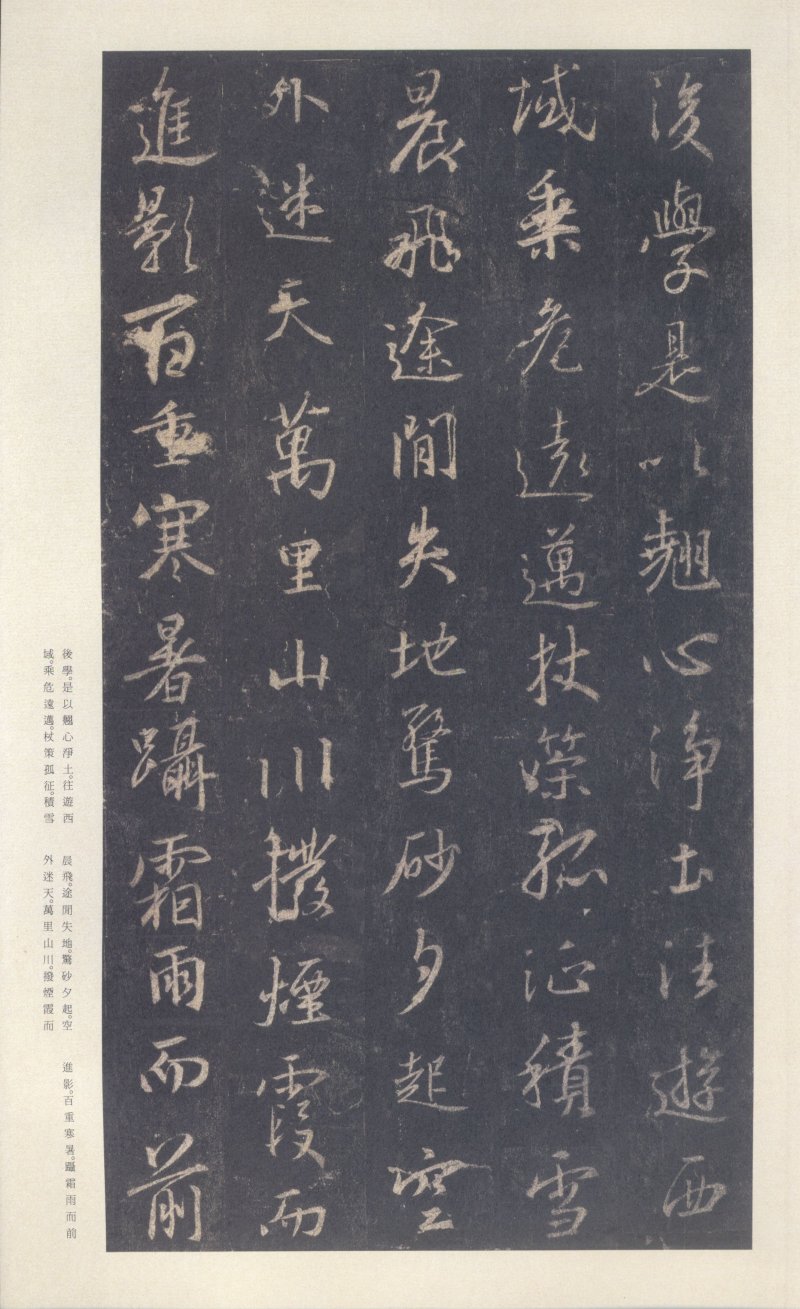 後學是以翹心淨土往遊西
域乘危遠邁杖策孤征積雪
晨飛途閒失地驚砂夕起空
外迷天萬里山川撥煙霞而
進影百重寒暑躡霜雨而前
後學。是以翹心淨土。往遊西
域。乘危遠邁。杖策孤征。積雪
晨飛。途閒失地。驚砂夕起。空
外迷天。萬里山川。撥煙霞而
進影。百重寒暑。躡霜雨而前